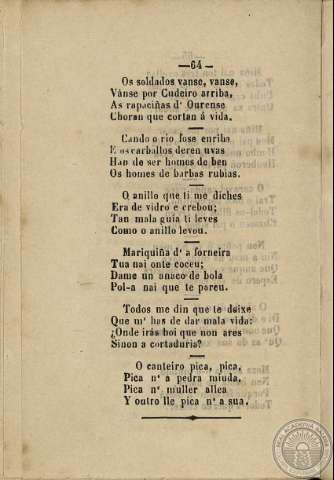 —64—
Os soldados vanse, vanse,
Vánse por Cudeiro arriba,
As rapaciñas d' Ourense
Choran que cortan á vida.
Cando o rio fose enriba
E os carballos deren uvas
Han de ser homes de ben
Os homes de barbas rubias.
O anillo que ti me diches
Era de vidro e crebou;
Tan mala guia ti leves
Como o anillo levou.
Mariquiña d' a forneira
Tua nai onte coceu;
Dame un anaco de bola
Pol-a nai que te pareu.
Todos me din que te deixe
Que m' has de dar mala vida:
¿Onde irás boi que non ares
Sinon a cortaduria?
O canteiro pica, pica,
Pica n' a pedra miuda,
Pica n' a muller allea
Y outro lle pica n' a sua.